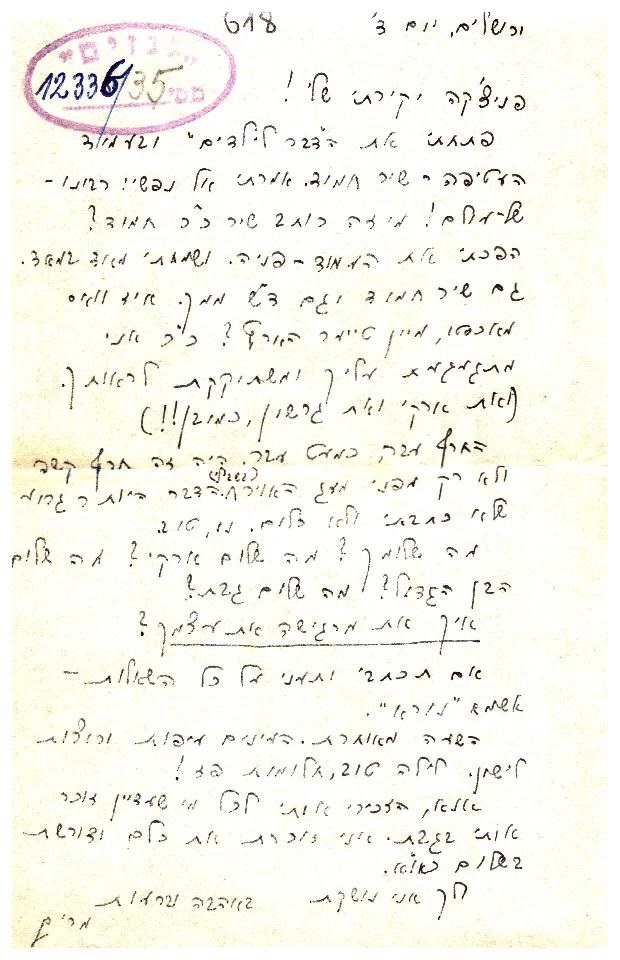 618
ירושלים, יום ד'
"גנזים"
12336/35
פניצ'קה יקירתי שלי!
פתחתי את ה"דבר לילדים" ובעמוד
העטיפה - שיר חמוד. אמרתי אל נפשי: רבונו-
של-עולם! מי זה כותב שיר כ"כ חמוד?
הפכתי את העמוד - פניה. ושמחתי מאוד במאד.
גם שיר חמוד וגם ד"ש ממך. איך וואס
מאכסטו, מיין טייער הארץ? כ"כ אני
מתגעגעת עליך ומשתוקקת לראותך.
(ואת ארקי ואת גרשון, כמובן!!)
החרף עבר, כמעט עבר. היה זה חרף קשה
ולא רק מפני מזג האויר. הדבר היותר גרוע
בשבילי
שלא כתבתי ולא כלום. נו, טוב.
מה שלומך? מה שלום ארקי? מה שלום
הבן הגדול? מה שלום גבת?
איך את מרגישה את עצמך?
אם תכתבי ותעני על כל השאלות -
אשמח "נורא".
השעה מאוחרת. העינים עיפות ורוצות
לישון. לילה טוב, חלומות פז!
אנא, הזכירי אותי לכל מי שעדיין זוכר
אותי בגבת. אני זוכרת את כלם ודורשת
בשלום כאו"א.
לך אני נושקת באהבה וברעות
מרים